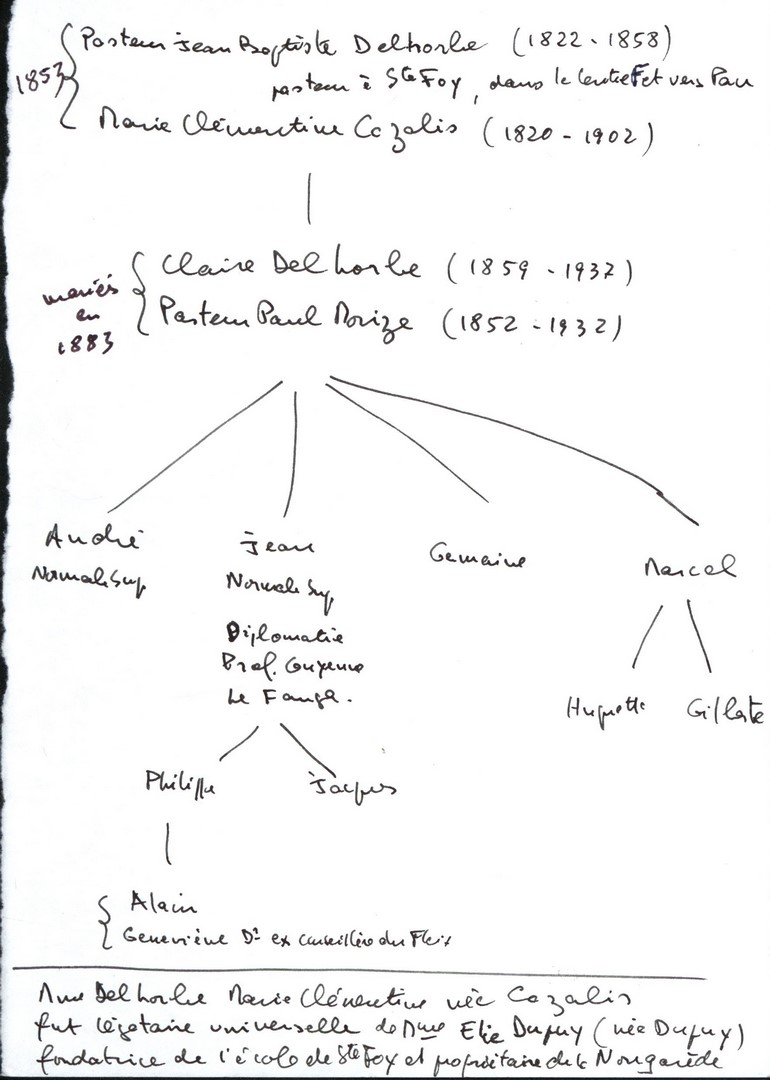 Pasteur Jean Baptiste Delhorbe (1822 - 1858)
1853
pasteur à Ste Foy, dans le Centre et vers Pau
Marie Clémentine Cazalis (1820 - 1902)
Claire Delhorbe (1859 - 1937)
mariés
en
1883
Pasteur Paul Morize (1852 - 1932)
André
Normale Sup
Jean
Normale Sup
Diplomatie
Prof. Guyenne
Le Fanga.
Germaine
Marcel
Huguette
Philippe
Jacques
Alain
Geneviève Dr ex conseillère du Fleix
Mme Delhorbe Marie Clémentine née Cazalis
fut légataire universelle de Mme Elie Dupuy (née Dupuy)
fondatrice de l'école de Ste Foy et propriétaire de la Nougarède